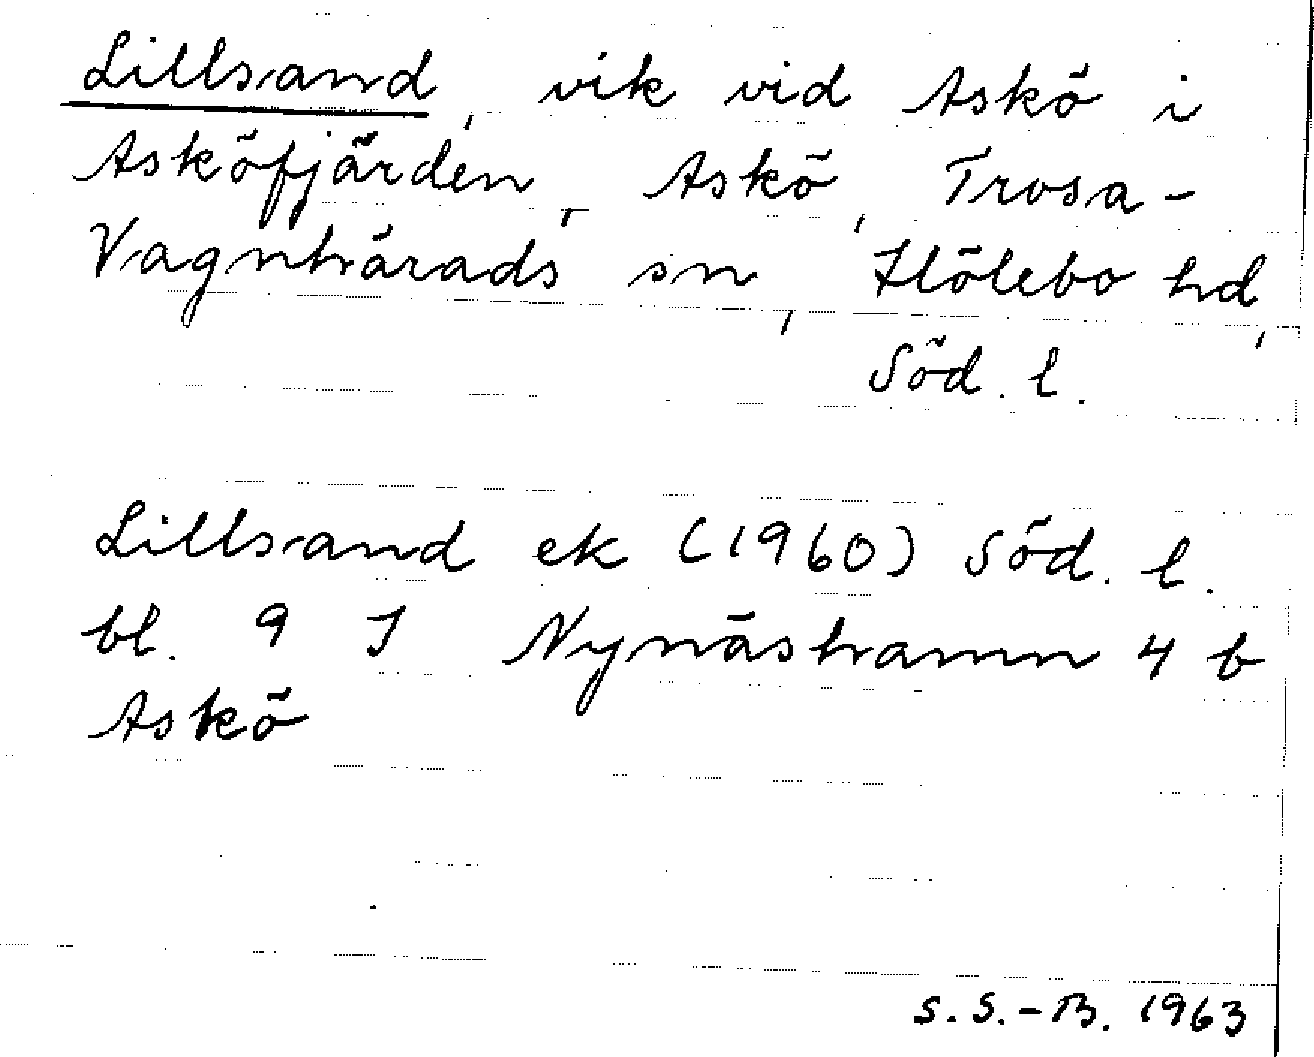 Lillsand, vik vid Askö i
Asköfjärden, Askö, Trosa-
Vagnhärads sn, Hölebo hd,
Söd. l.
Lillsand ek (1960) Söd. l.
bl. 9 I Nynäshamn 4 b
Askö
S. S.-B. 1963